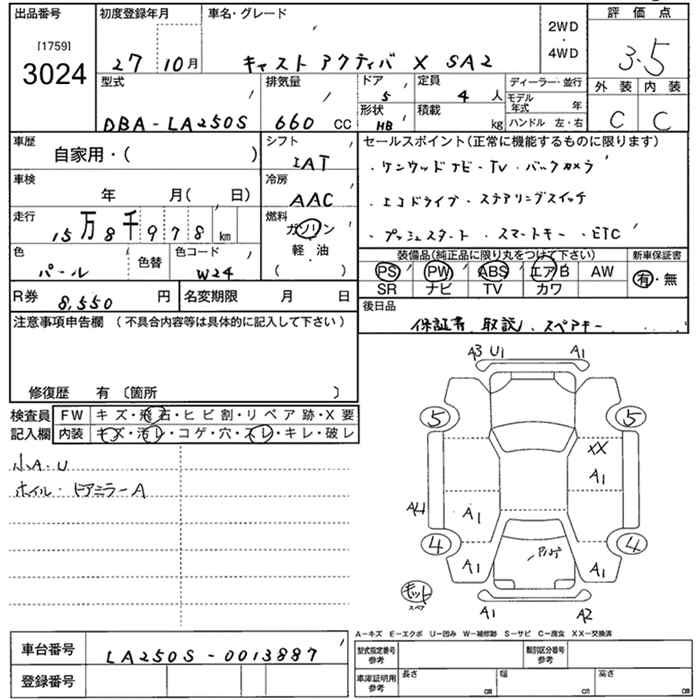 出品番号 初度登録年月 車名・グレード 評価点
[1759]
3024
27 10月 キャスト アクティバ X SA2
2WD
・
4WD
3.5
型式 排気量 ドア 定員 ディーラー・並行 外装 内装
5 4人 モデル年式 年
DBA-LA250S 660 CC 形状 HB 積載 kg ハンドル 左・右 C C
車歴 シフト セールスポイント(正常に機能するものに限ります)
自家用・( ) IAT ・ケンウッドナビ・TV・バックカメラ
車検 冷房
年 月( 日) AAC ・エコドライブ・ステアリングスイッチ
走行 燃料
15万8千978km ガソリン ・プッシュスタート・スマートキー・ETC
色 色替 色コード 軽・油 装備品(純正品に限り丸をつけて下さい) 新車保証書
パール W24 ( ) PS PW ABS エアB AW 有・無
SR ナビ TV カワ
R券 8,550円 名変期限 月 日 後日品
保証書、取説、スペアキー
注意事項申告欄(不具合内容等は具体的に記入して下さい)
修復歴 有〔箇所 〕
検査員 FW キズ・飛石・ヒビ割・リペア跡・X要
記入欄 内装 キズ・汚レ・コゲ・穴・スレ・キレ・破レ
小A・U
ホイル・ドアミラーA
A3 U1 A1
5 5
XX
A1
A4 A1
4 4
A1 A1
キット
スペア
A1 A2
A-キズ E-エクボ U-凹み W-補修跡 S-サビ C-腐食 XX-交換済
車台番号 LA250S-0013887 型式指定番号 参考 類別区分番号 参考
登録番号 車庫証明用 参考 長さ cm 幅 cm 高さ cm